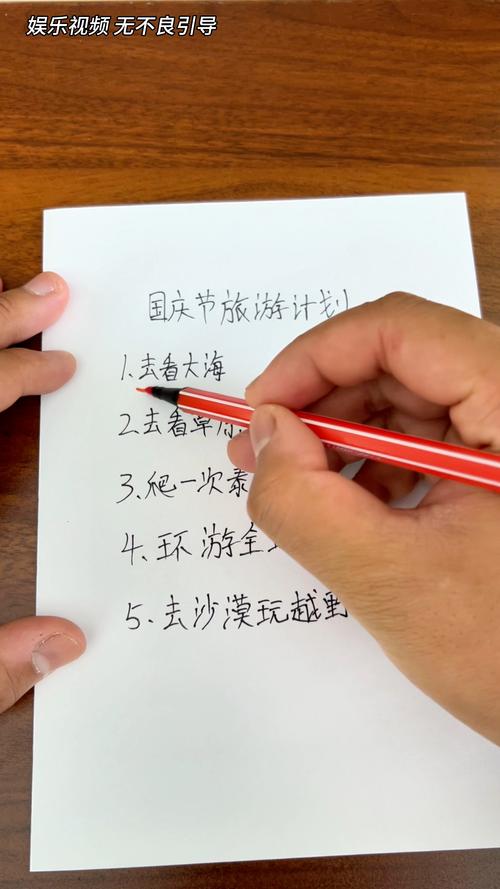 娱乐视频 无不良引导
国庆节旅游计划
1.去看大海
2.去看草原
3.爬一次泰
4.环游全
5.去沙漠玩越野